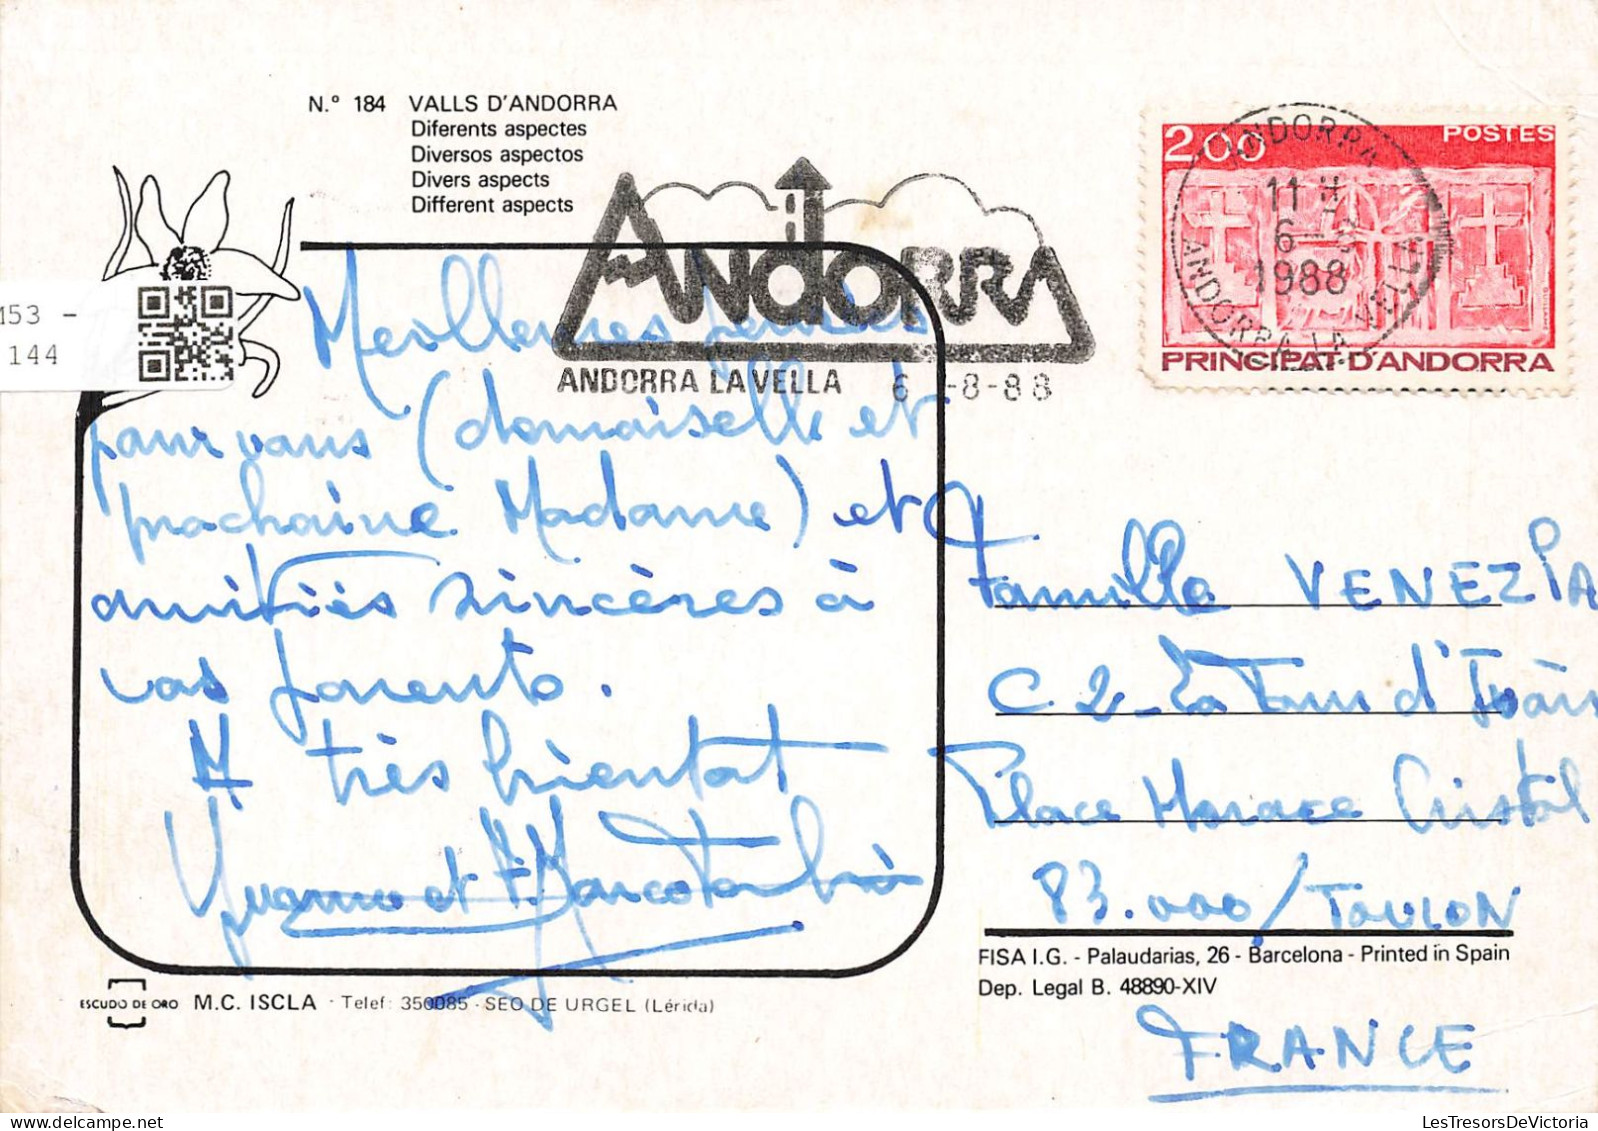 N.º 184 VALLS D'ANDORRA
Diferents aspectes
Diversos aspectos
Divers aspects
Different aspects
ANDORRA
ANDORRA LA VELLA 6 -8-88
2.00 POSTES
ANDORRA
11 H
6 -8
1988
ANDORRA LA VELLA
PRINCIPAT D'ANDORRA
M53 -
144
Meilleures pensées
pour vous (demoiselle et
prochaine Madame) et
amitiés sincères à
vos parents.
A très bientôt
Famille VENEZIA
C2 - La Tour d'
Place Horace Cristol
83.000 / TOULON
FRANCE
FISA I.G. - Palaudarias, 26 - Barcelona - Printed in Spain
Dep. Legal B. 48890-XIV
ESCUDO DE ORO M.C. ISCLA - Telef: 350085 - SEO DE URGEL (Lérida)
LesTresorsDeVictoria.com